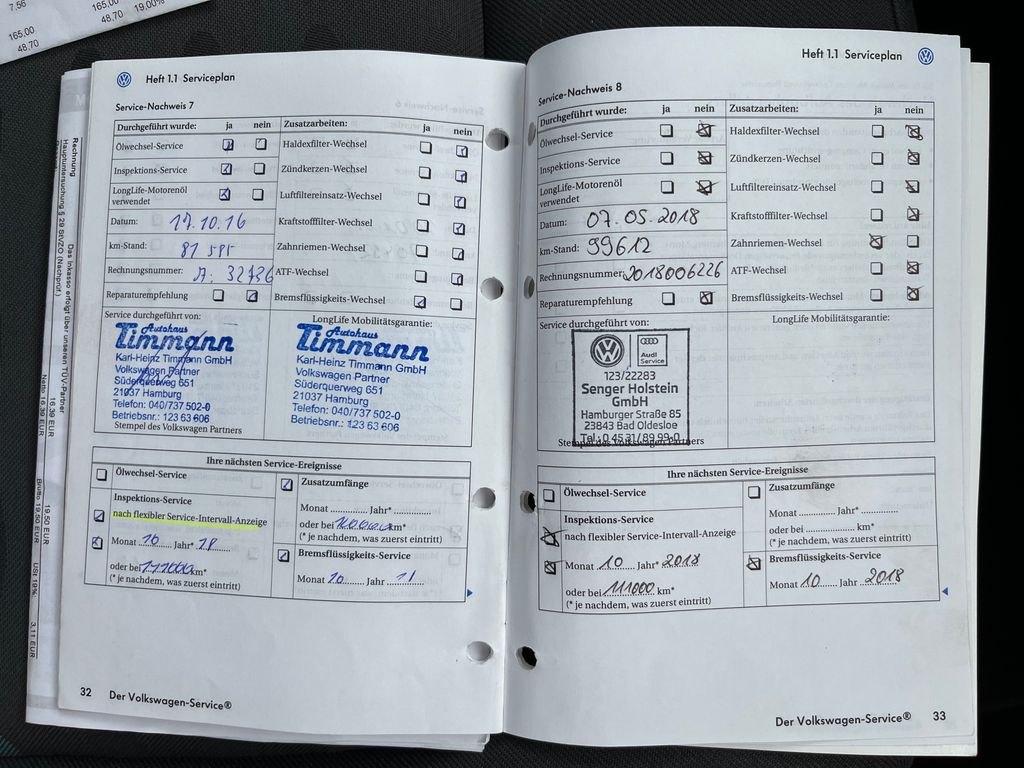 7.56
165.00
48,70
19.00%
165,00
48,70
Rechnung
Hauptuntersuchung § 29 StVZO (Nachprüf.)
Das Inkasso erfolgt über unseren TÜV-Partner
Netto 16,39 EUR
16,39 EUR
Brutto 19,50 EUR
19,50 EUR
USt 19%:
3,11 EUR
Heft 1.1 Serviceplan
Service-Nachweis 7
Durchgeführt wurde: ja nein
Zusatzarbeiten: ja nein
Ölwechsel-Service
Haldexfilter-Wechsel
Inspektions-Service
Zündkerzen-Wechsel
LongLife-Motorenöl
verwendet
Luftfiltereinsatz-Wechsel
Datum: 17.10.16
Kraftstofffilter-Wechsel
km-Stand: 81 585
Zahnriemen-Wechsel
Rechnungsnummer: A: 32736
ATF-Wechsel
Reparaturempfehlung
Bremsflüssigkeits-Wechsel
Service durchgeführt von:
LongLife Mobilitätsgarantie:
Autohaus
Timmann
Karl-Heinz Timmann GmbH
Volkswagen Partner
Süderquerweg 651
21037 Hamburg
Telefon: 040/737 502-0
Betriebsnr.: 123 63 606
Stempel des Volkswagen Partners
Autohaus
Timmann
Karl-Heinz Timmann GmbH
Volkswagen Partner
Süderquerweg 651
21037 Hamburg
Telefon: 040/737 502-0
Betriebsnr.: 123 63 606
Ihre nächsten Service-Ereignisse
Ölwechsel-Service
Zusatzumfänge
Inspektions-Service
nach flexibler Service-Intervall-Anzeige
Monat Jahr*
oder bei km*
(* je nachdem, was zuerst eintritt)
Monat 10 Jahr* 18
oder bei 111000 km*
(* je nachdem, was zuerst eintritt)
Bremsflüssigkeits-Service
Monat 10 Jahr
32 Der Volkswagen-Service®
Heft 1.1 Serviceplan
Service-Nachweis 8
Durchgeführt wurde: ja nein
Zusatzarbeiten: ja nein
Ölwechsel-Service
Haldexfilter-Wechsel
Inspektions-Service
Zündkerzen-Wechsel
LongLife-Motorenöl
verwendet
Luftfiltereinsatz-Wechsel
Datum: 07.05.2018
Kraftstofffilter-Wechsel
km-Stand: 99612
Zahnriemen-Wechsel
Rechnungsnummer: 2018006226
ATF-Wechsel
Reparaturempfehlung
Bremsflüssigkeits-Wechsel
Service durchgeführt von:
LongLife Mobilitätsgarantie:
Audi
Service
123/22283
Senger Holstein
GmbH
Hamburger Straße 85
23843 Bad Oldesloe
Tel.: 0 45 31/89 99-0
Stempel des Volkswagen Partners
Ihre nächsten Service-Ereignisse
Ölwechsel-Service
Zusatzumfänge
Inspektions-Service
nach flexibler Service-Intervall-Anzeige
Monat Jahr*
oder bei km*
(* je nachdem, was zuerst eintritt)
Monat 10 Jahr* 2018
oder bei 111000 km*
(* je nachdem, was zuerst eintritt)
Bremsflüssigkeits-Service
Monat 10 Jahr 2018
Der Volkswagen-Service® 33